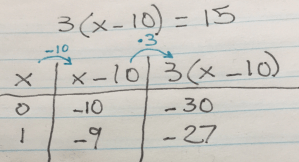 3(x-10) = 15
-10 ·3
x x-10 3(x-10)
0 -10 -30
1 -9 -27